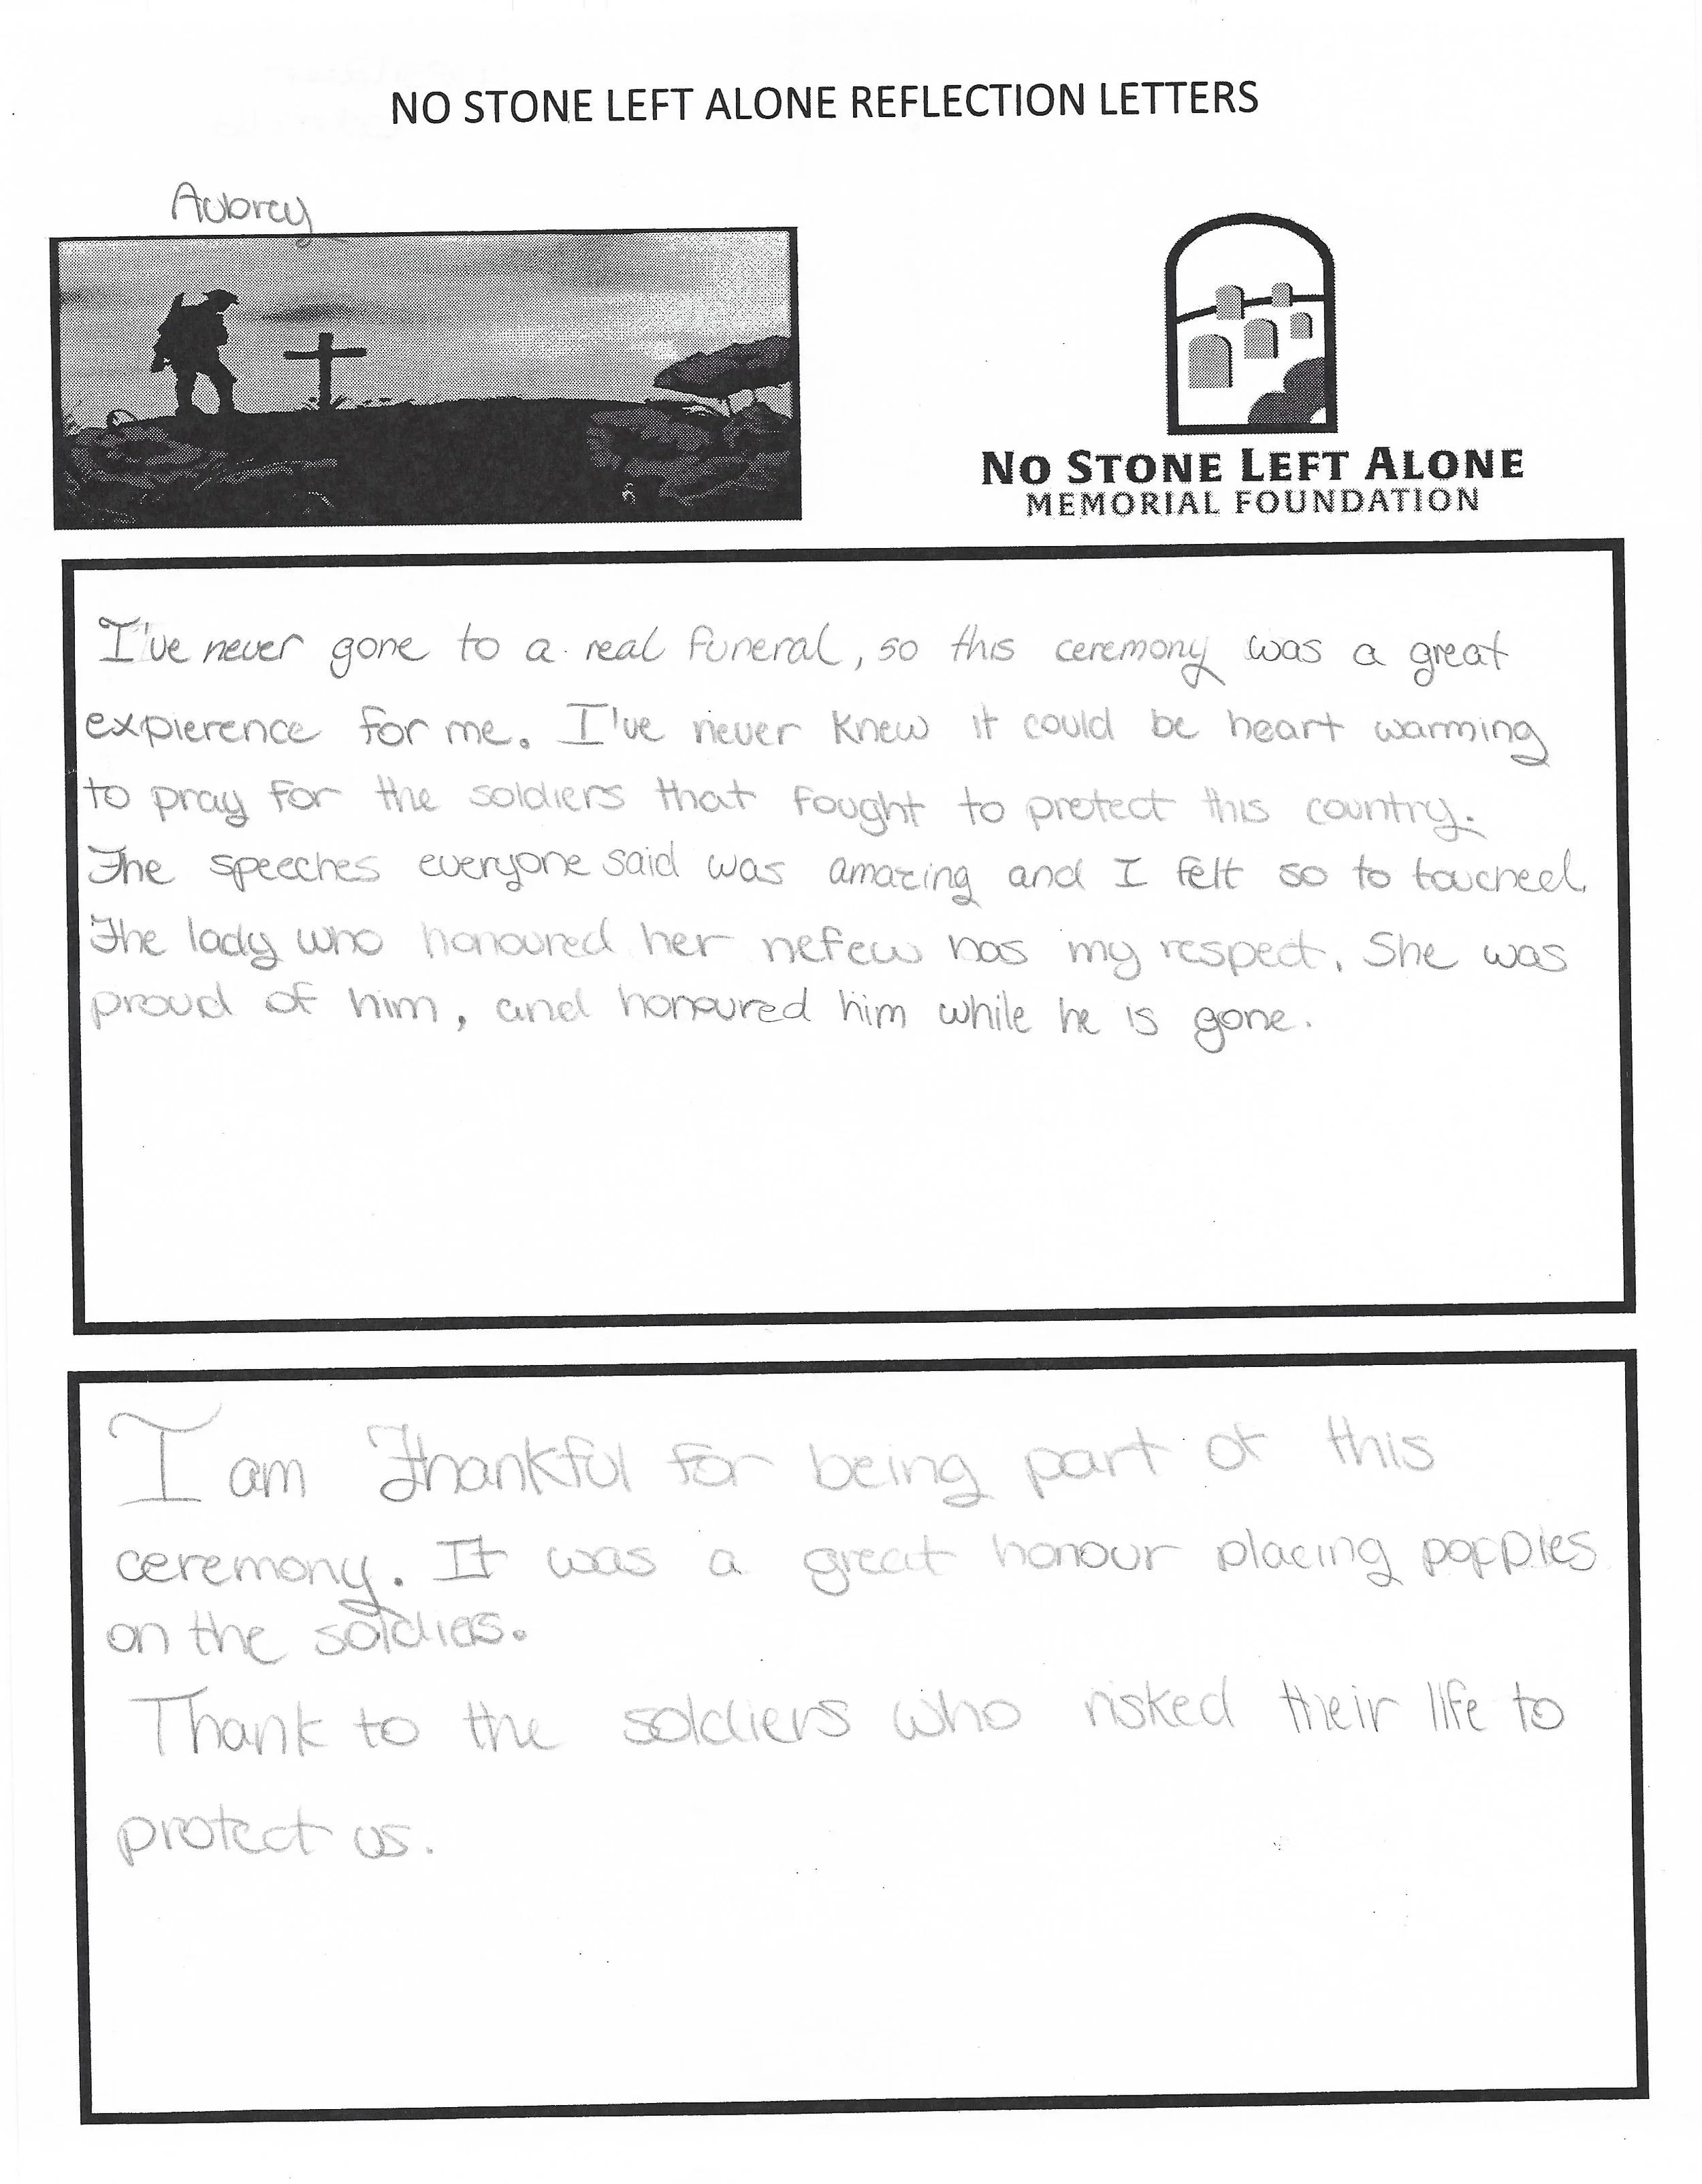 NO STONE LEFT ALONE REFLECTION LETTERS
Aubrey
NO STONE LEFT ALONE
MEMORIAL FOUNDATION
I've never gone to a real funeral, so this ceremony was a great
expierence for me. I've never knew it could be heart warming
to pray for the soldiers that fought to protect this country.
The speeches everyone said was amazing and I felt so to touched.
The lady who honoured her nefew has my respect. She was
proud of him, and honoured him while he is gone.
I am thankful for being part of this
ceremony. It was a great honour placing poppies
on the soldies.
Thank to the soldiers who risked their life to
protect us.